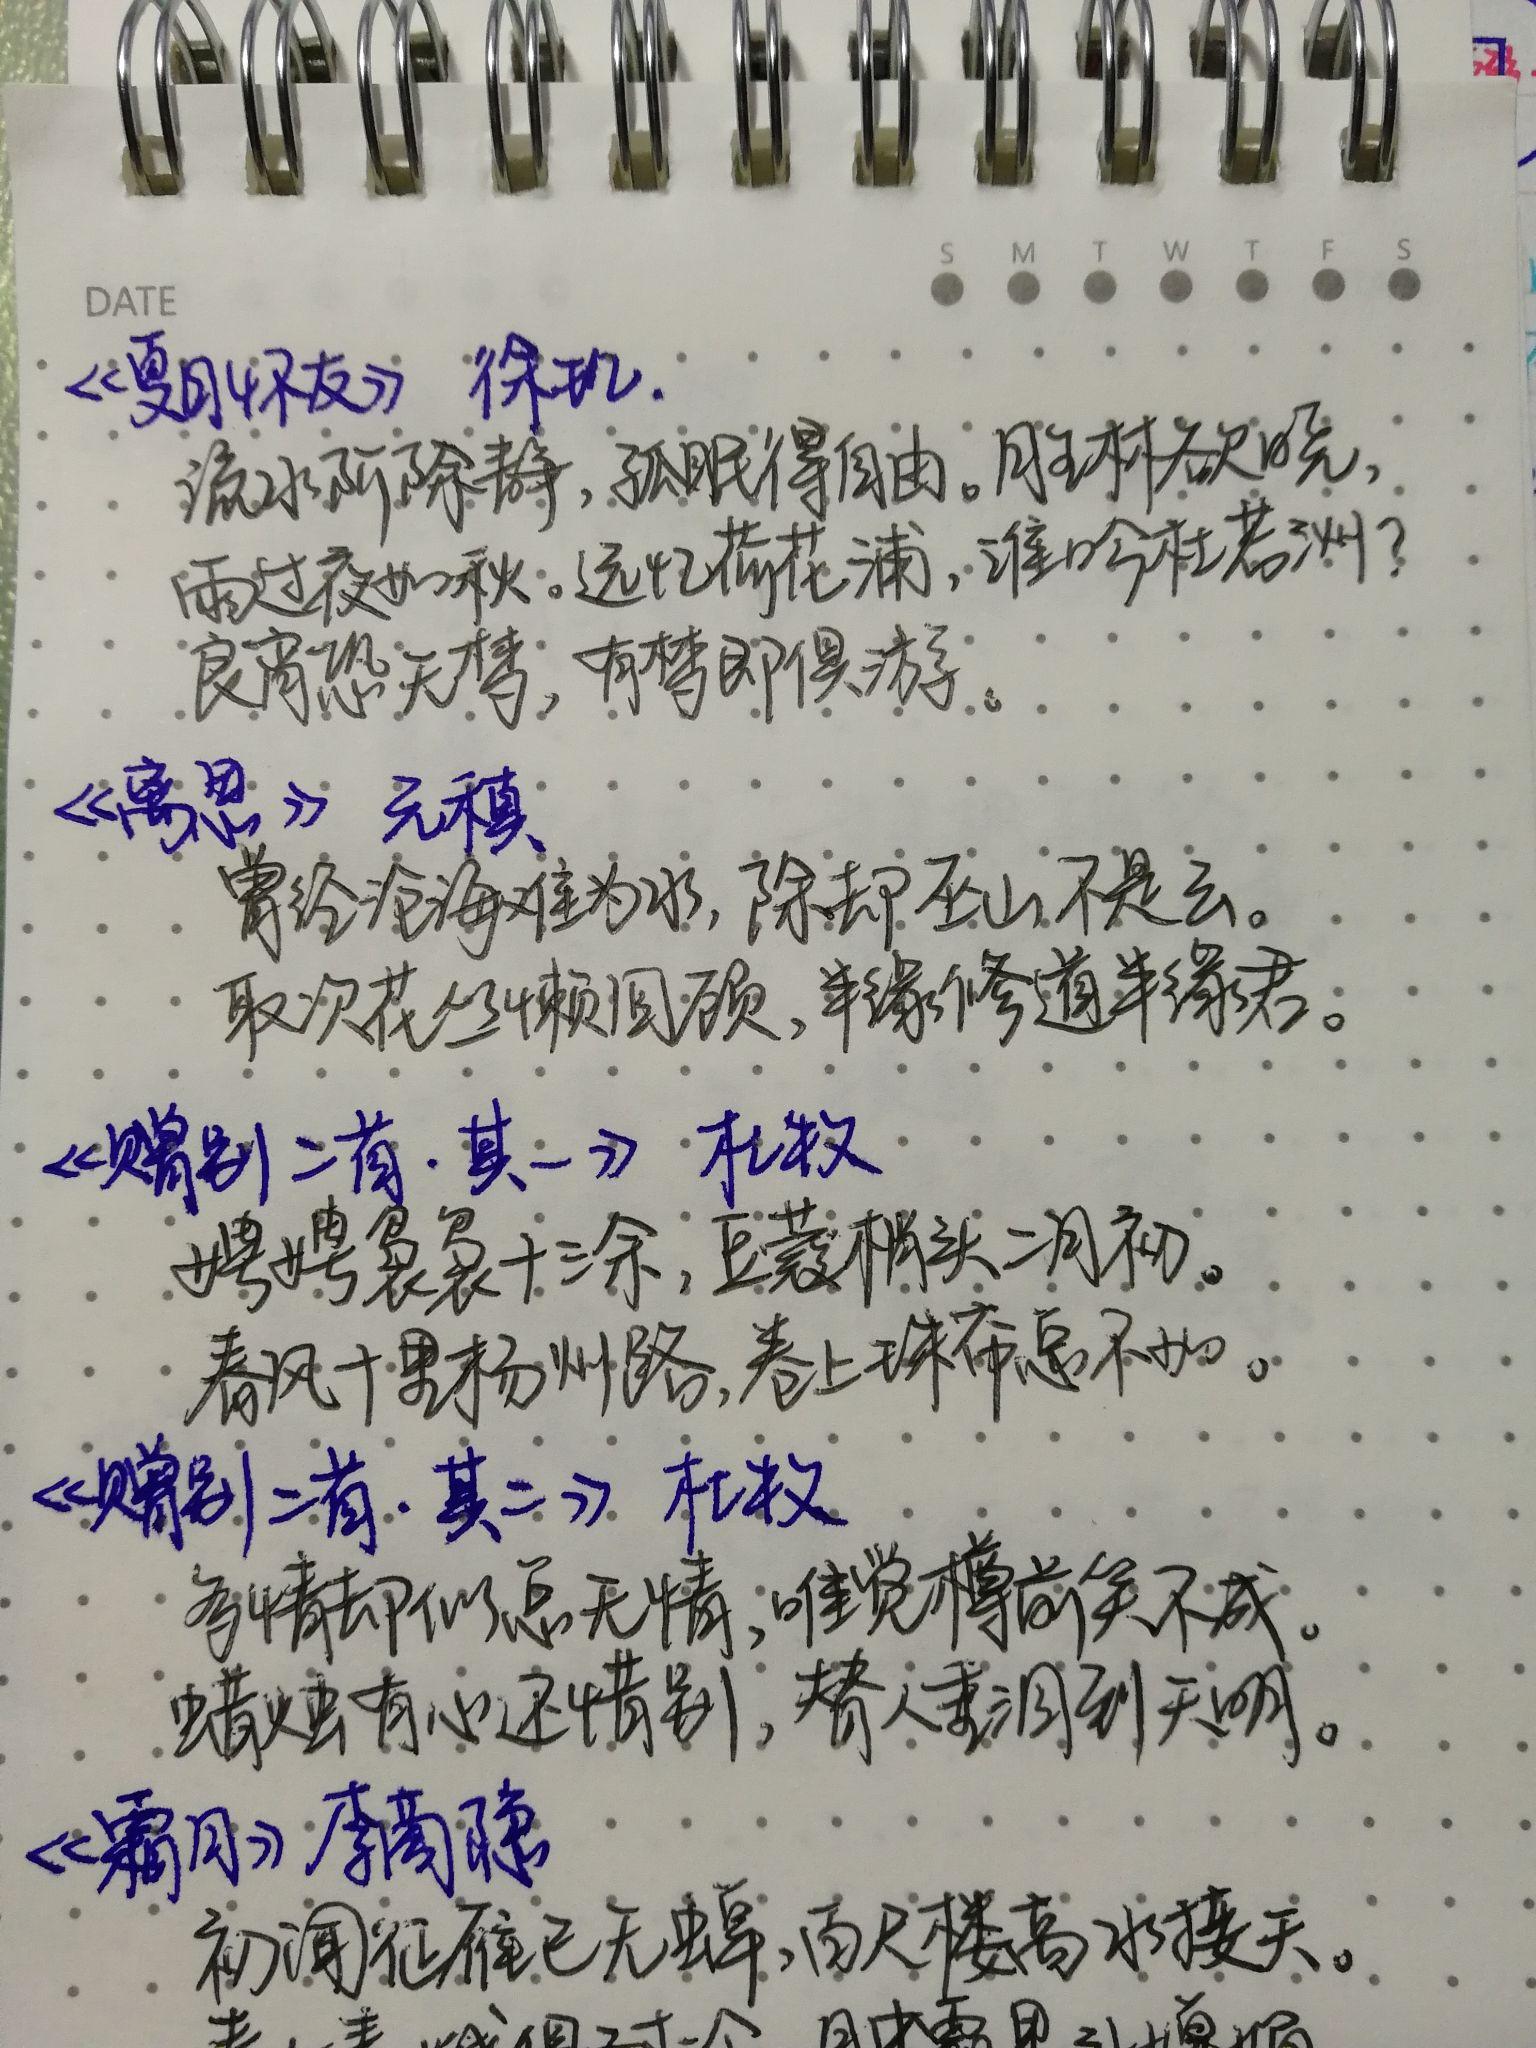 DATE
S M T W T F S
《夏日怀友》 徐玑.
流水阶除静,孤眠得自由。月生林欲晓,
雨过夜如秋。远忆荷花浦,谁吟杜若洲?
良宵恐无梦,有梦即俱游。
《离思》 元稹
曾经沧海难为水,除却巫山不是云。
取次花丛懒回顾,半缘修道半缘君。
《赠别二首·其一》 杜牧
娉娉袅袅十三余,豆蔻梢头二月初。
春风十里杨州路,卷上珠帘总不如。
《赠别二首·其二》 杜牧
多情却似总无情,唯觉樽前笑不成。
蜡烛有心还惜别,替人垂泪到天明。
《霜月》李商隐
初闻征雁已无蝉,百尺楼高水接天。